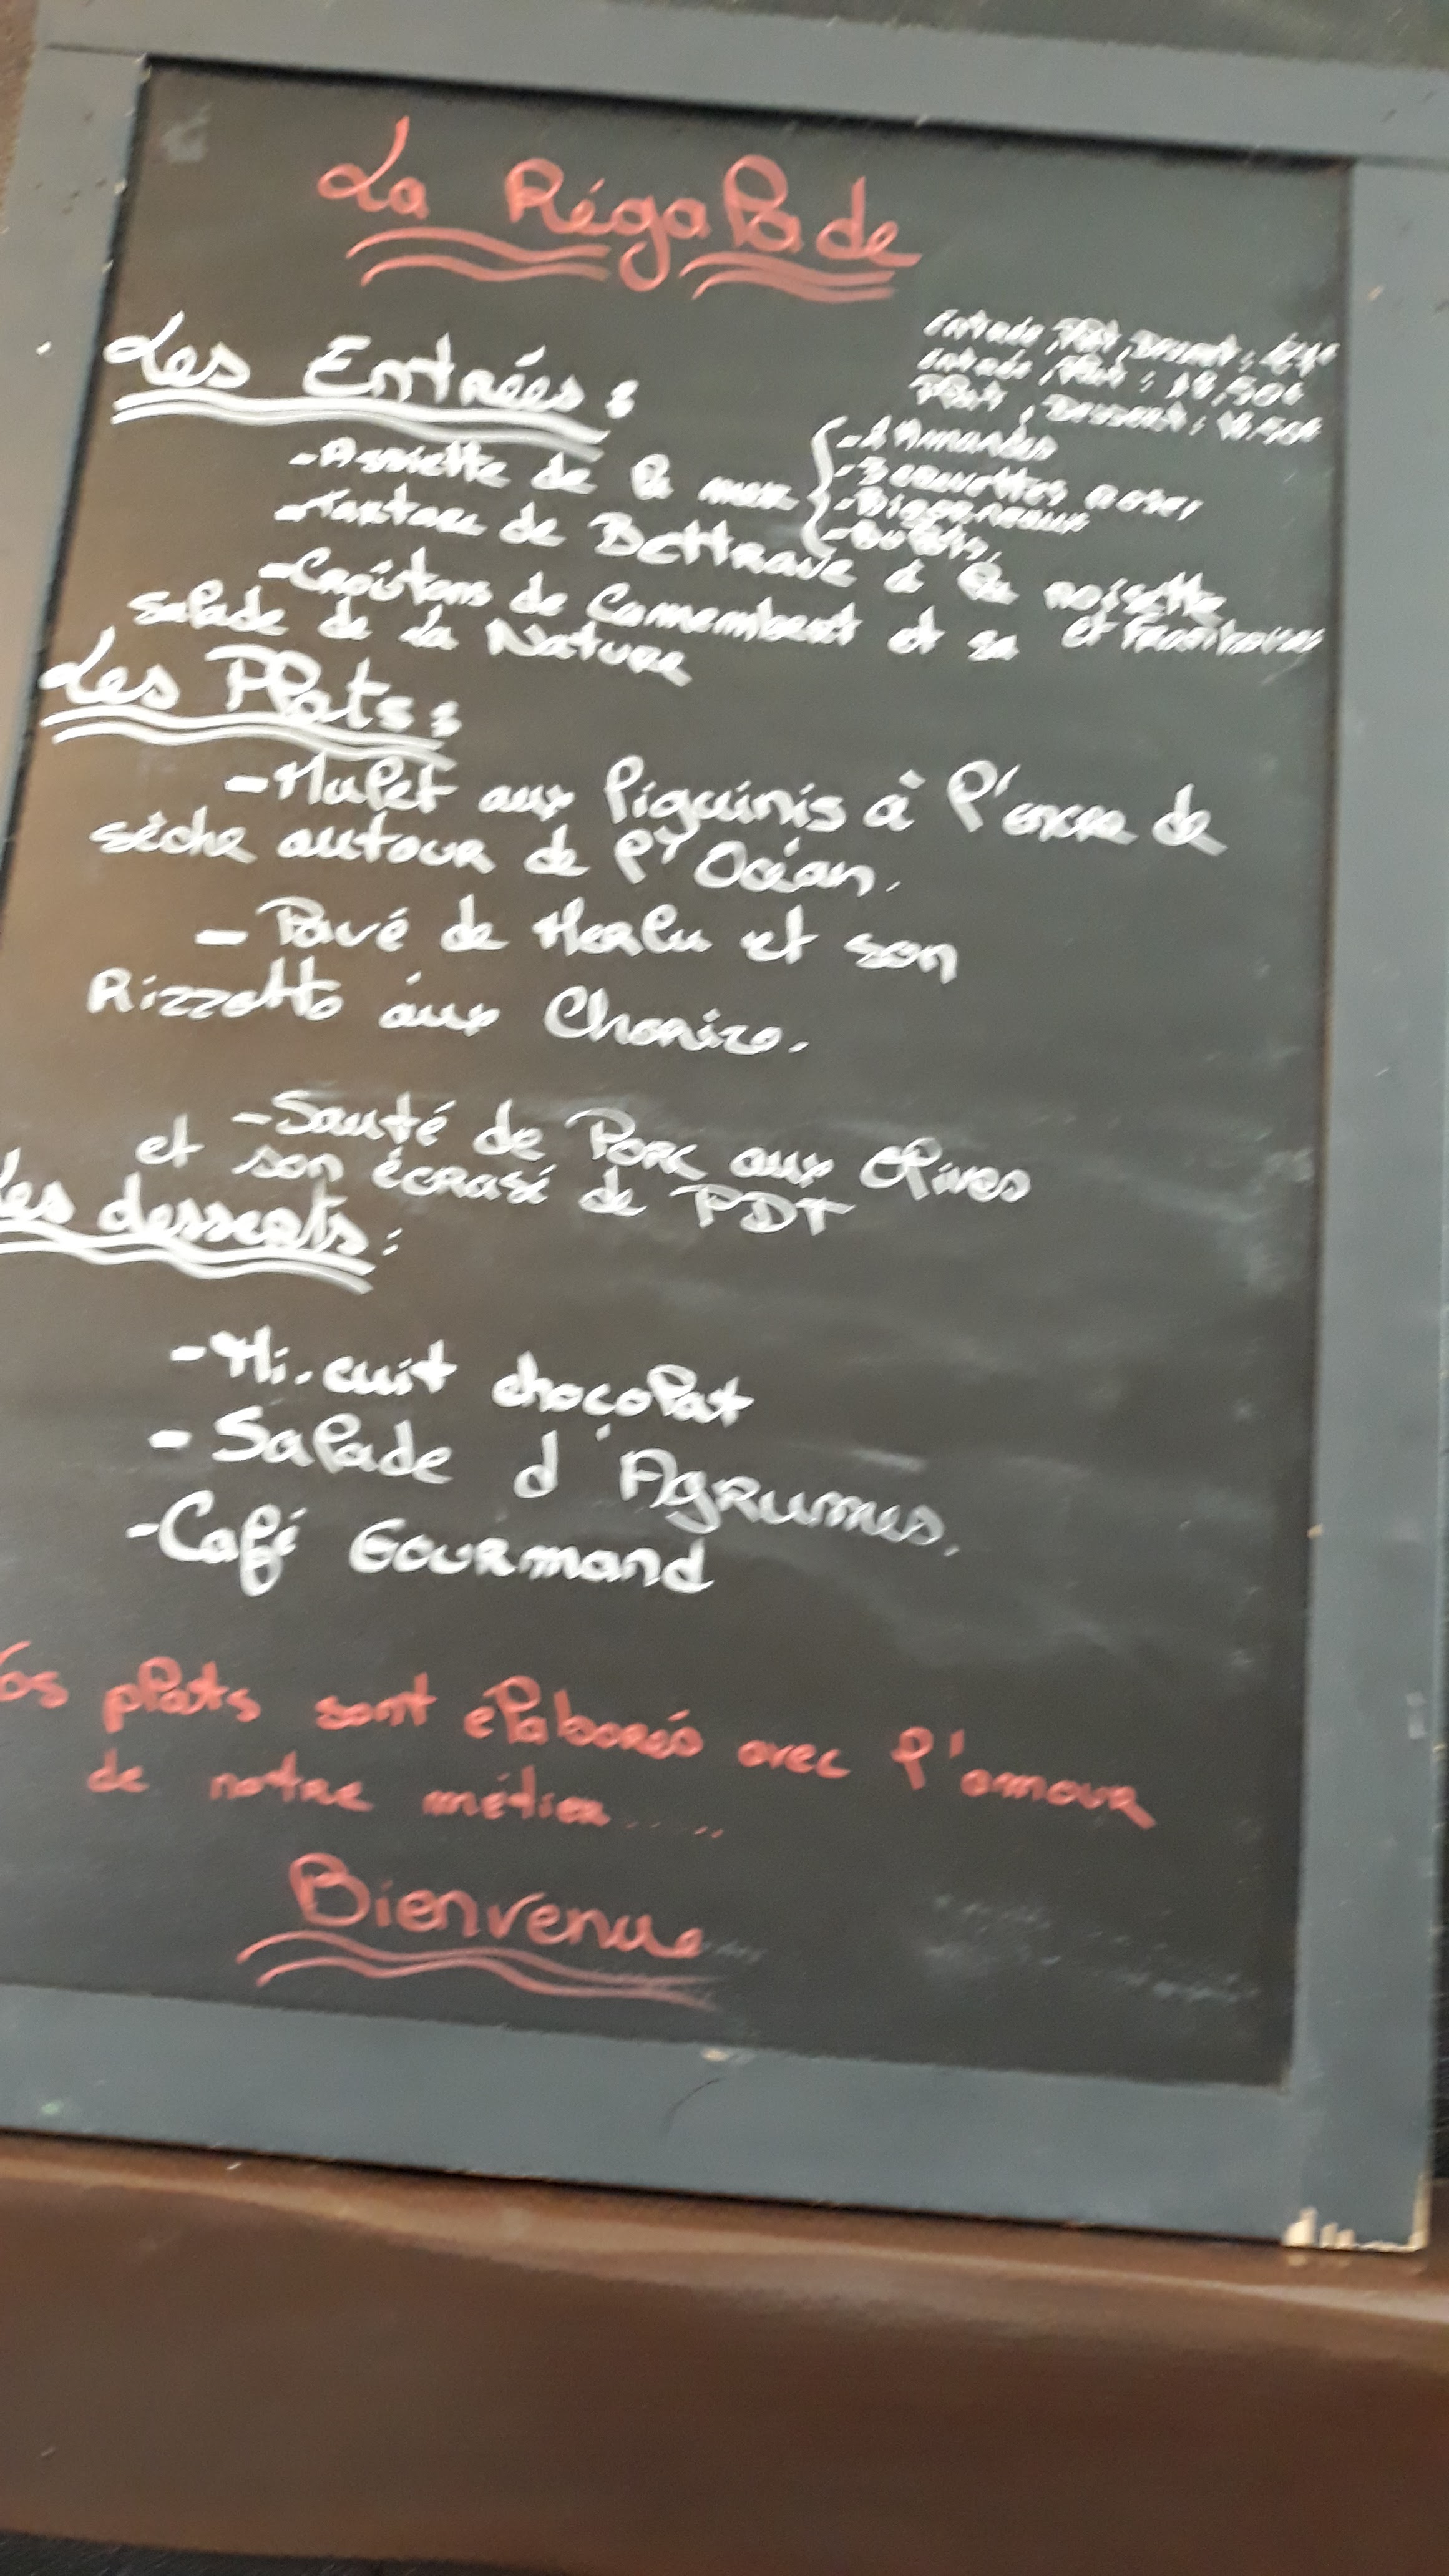 La Régalade
Les Entrées :
Entrée, Plat, Dessert :
Entrée, Plat : 18,50€
Plat, Dessert :
- Assiette de la mer
- Amandes
- 3 crevettes roses
- Bigorneaux
- Bulots
- Tartare de Bettrave à la noisette
et framboises
- Croûtons de Camembert et sa
salade de la Nature
Les Plats :
- Mulet aux liguinis à l'encre de
sèche autour de l'Océan.
- Pavé de Merlu et son
Rizzotto aux Chorizo.
- Sauté de Porc aux Olives
et son écrasé de PDT
Les desserts :
- Mi-cuit chocolat
- Salade d'Agrumes.
- Café Gourmand
plats sont élaborés avec l'amour
de notre métier.....
Bienvenue